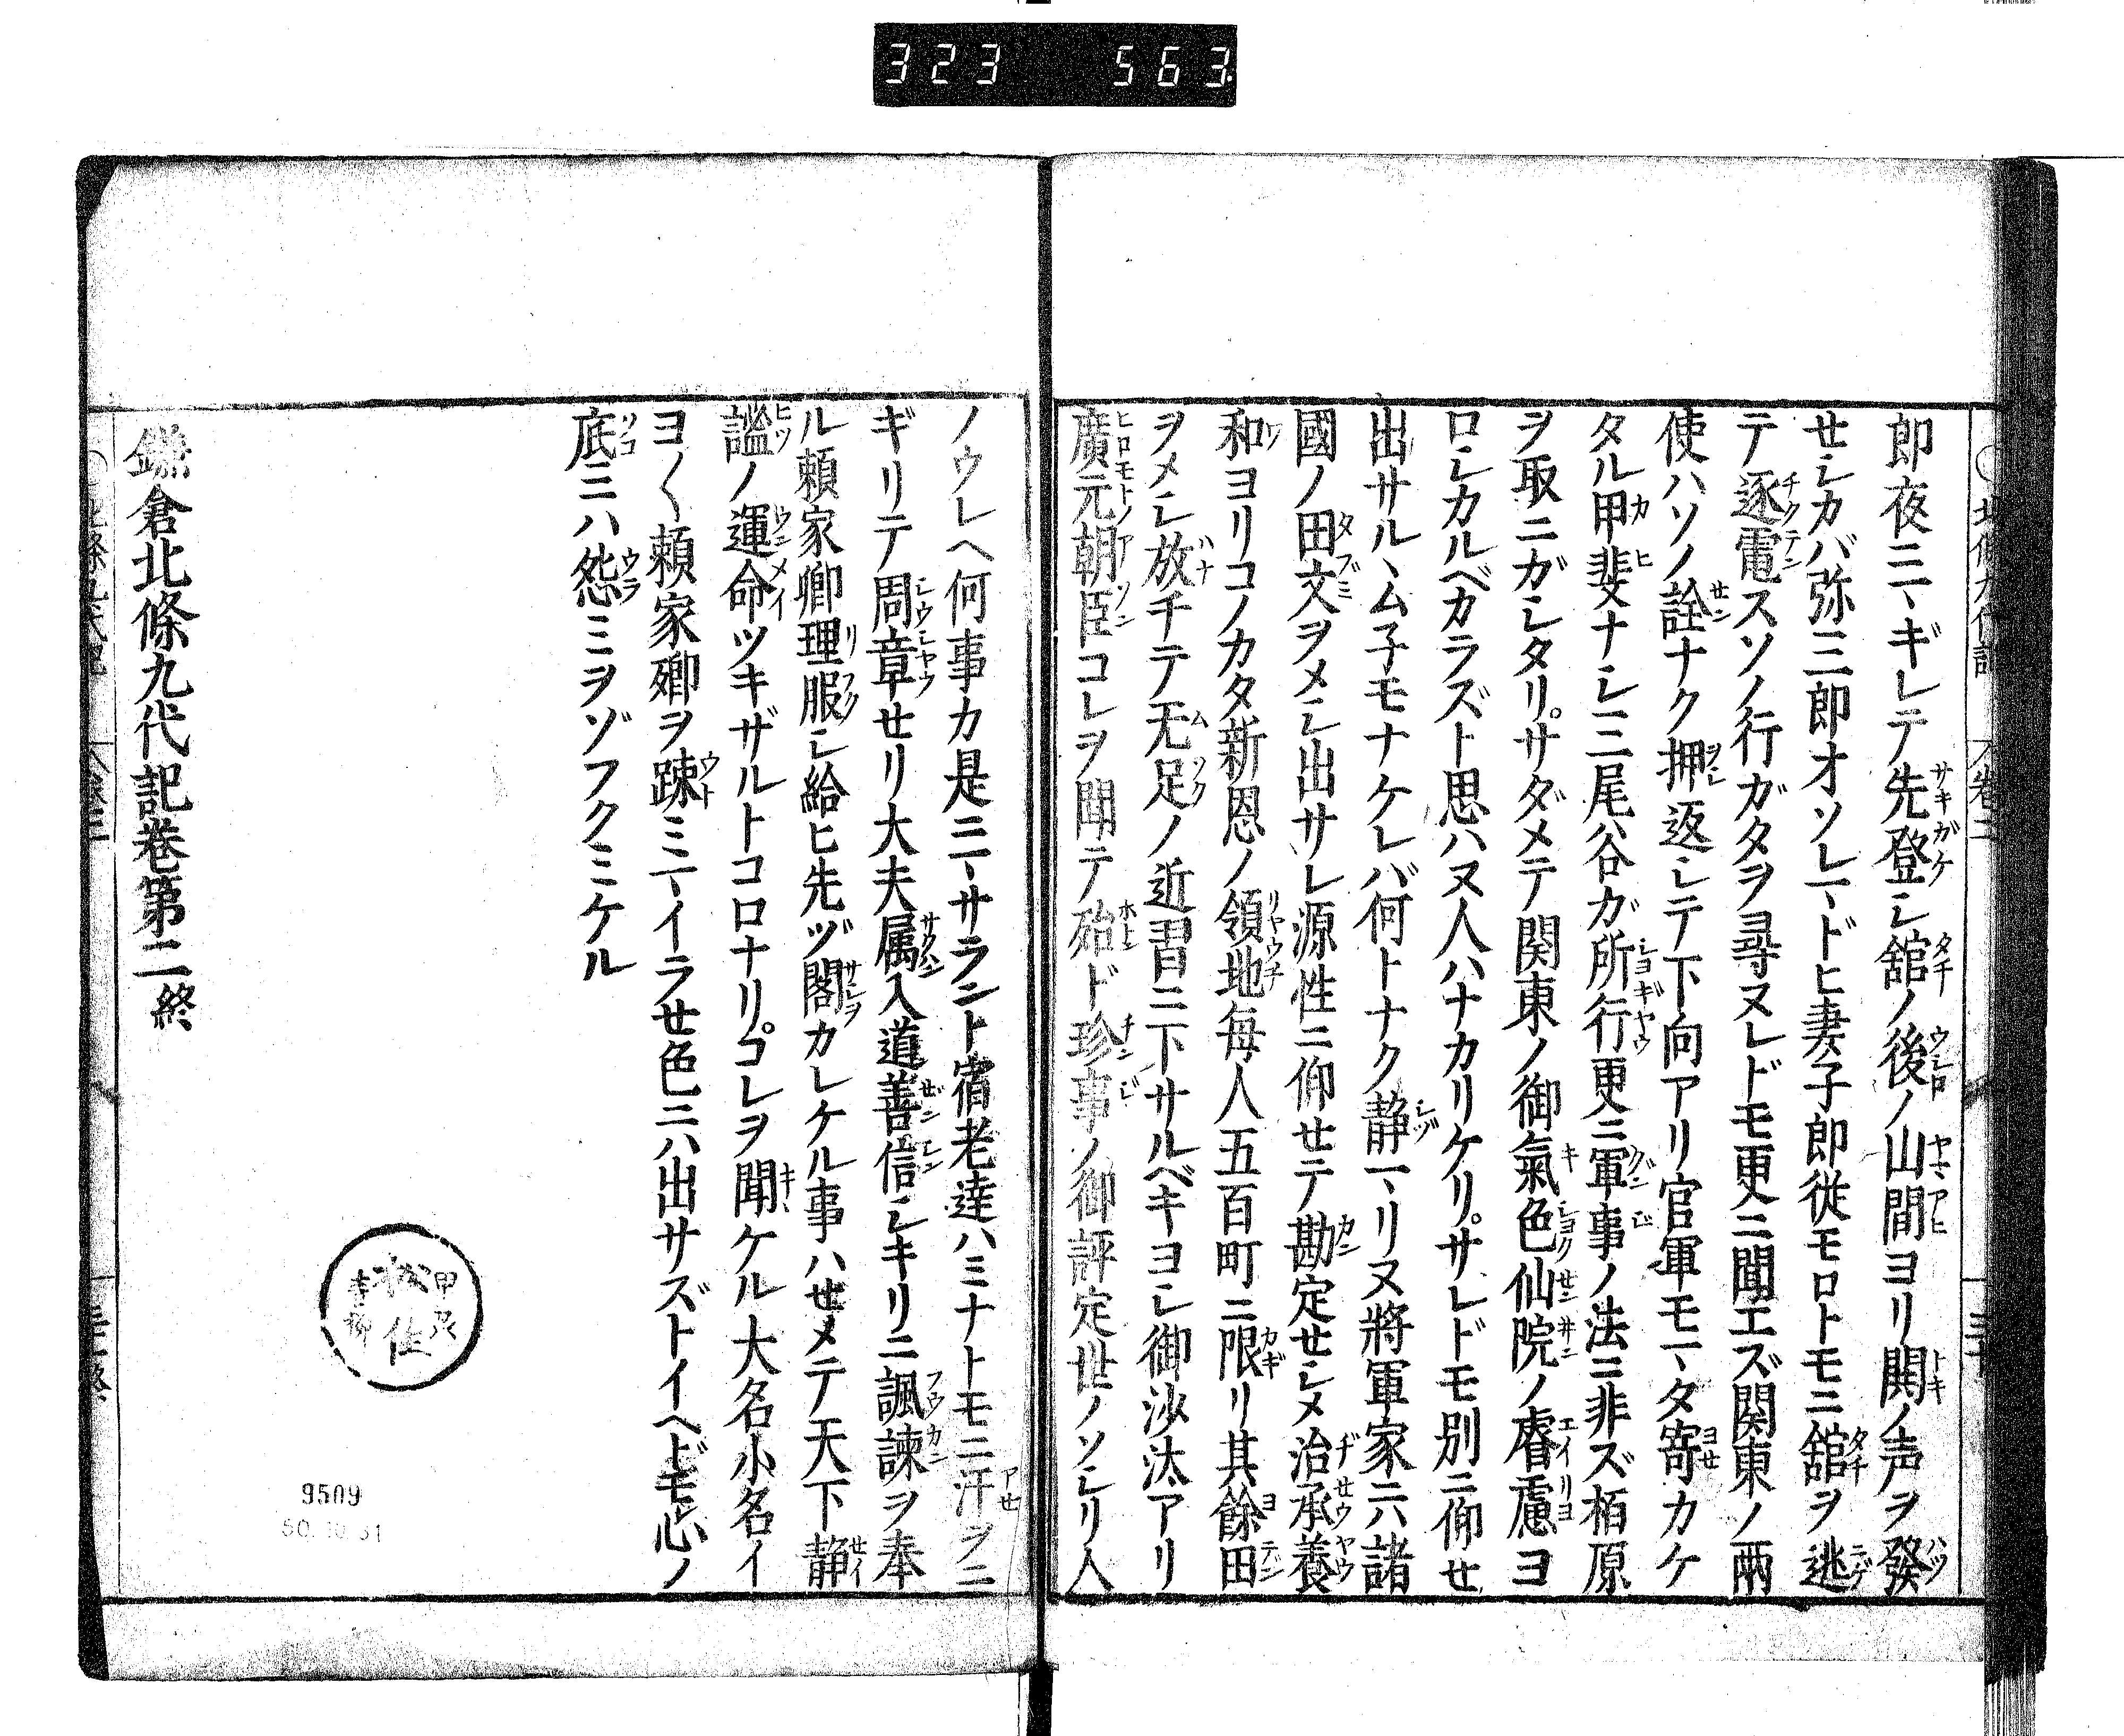 323 563
即夜ニヽギレテ先登シ舘ノ後ノ山間ヨリ鬨ノ声ヲ發
セシカバ弥三郎オソレマドヒ妻子郎従モロトモニ舘ヲ逃
テ逐電スソノ行ガタヲ尋ヌレドモ更ニ聞エズ関東ノ兩
使ハソノ詮ナク押返シテ下向アリ官軍モマタ寄カケ
タル甲斐ナシ三尾谷ガ所行更ニ軍事ノ法ニ非ズ栢原
ヲ取ニガシタリサダメテ関東ノ御氣色仙院ノ睿慮ヨ
ロシカルベカラズト思ハヌ人ハナカリケリサレドモ別ニ仰セ
出サルヽムネモナケレバ何トナク静マリヌ將軍家ニハ諸
國ノ田文ヲメシ出サレ源性ニ仰セテ勘定セシメ治承養
和ヨリコノカタ新恩ノ領地毎人五百町ニ限リ其餘田
ヲメシ放チテ无足ノ近習ニ下サルベキヨシ御沙汰アリ
廣元朝臣コレヲ聞テ殆ド珍事ノ御評定世ノソシリ人
ノウレヘ何事カ是ニマサラント宿老達ハミナトモニ汗ヲニ
ギリテ周章セリ大夫属入道善信シキリニ諷諫ヲ奉
ル頼家卿理服シ給ヒ先ヅ閣カレケル事ハセメテ天下静
謐ノ運命ツキザルトコロナリコレヲ聞ケル大名小名イ
ヨ〱頼家卿ヲ踈ミマイラセ色ニハ出サズトイヘドモ心ノ
底ニハ怨ミヲゾフクミケル
鎌倉北條九代記巻第二終
9509
50.10.31